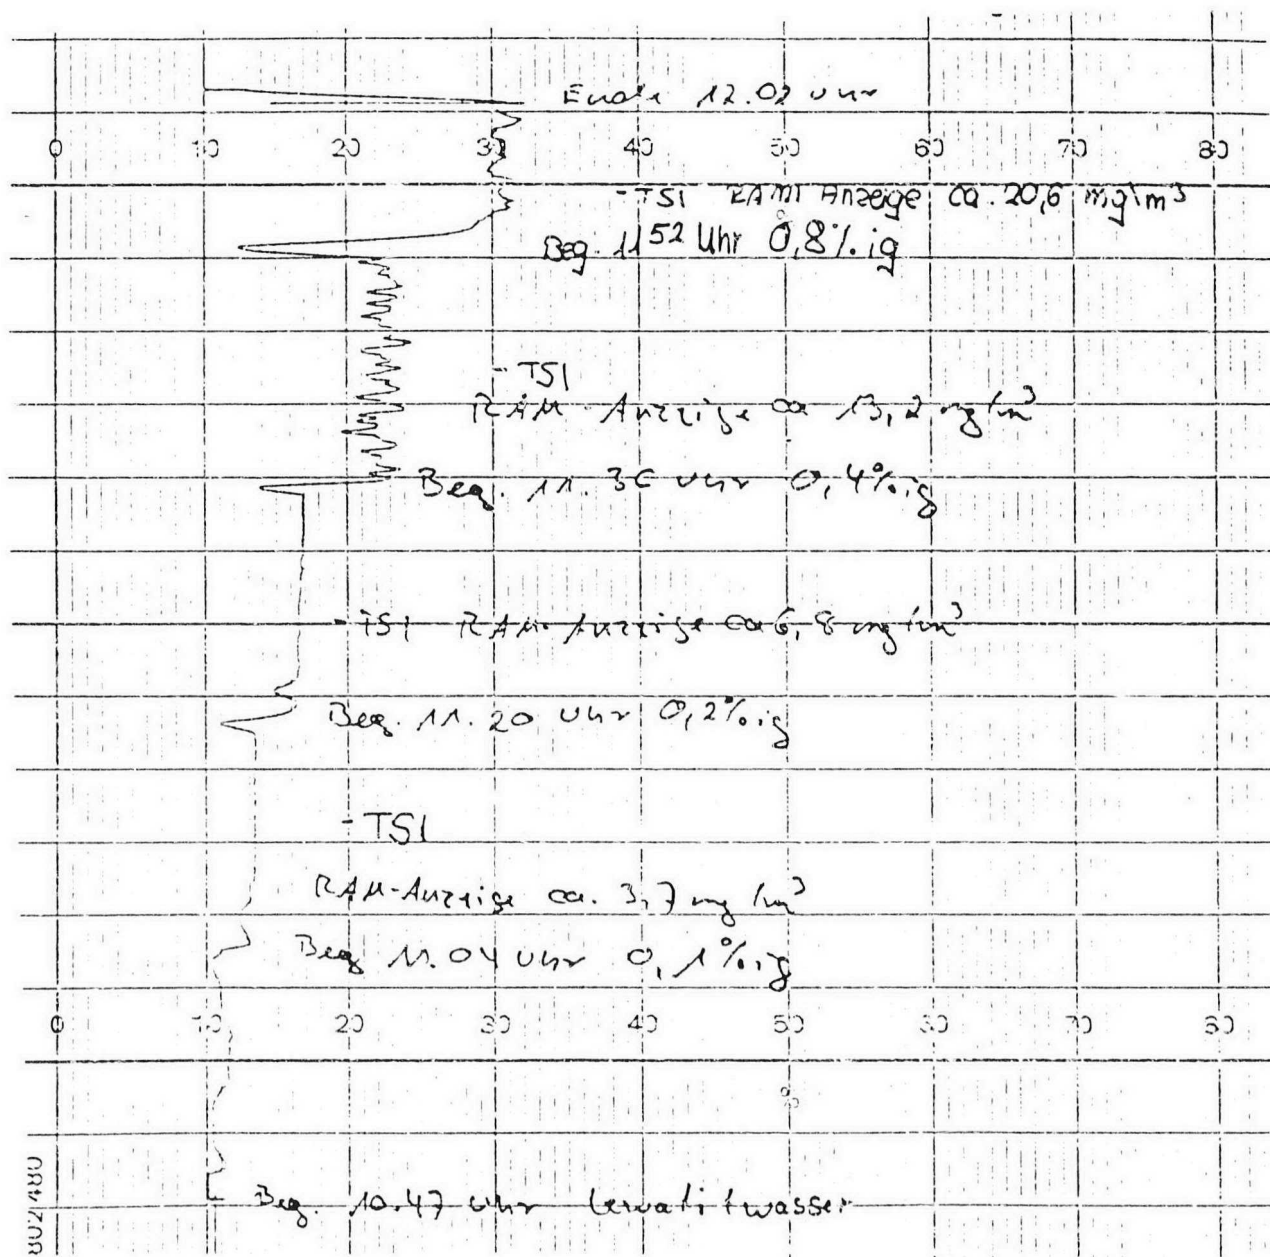 Ende 12.02 Uhr
0 10 20 30 40 50 60 70 80
- TSI RAM Anzeige ca. 20,6 mg/m³
Beg. 11 52 Uhr 0,8%ig
- TSI
RAM-Anzeige ca 13,2 mg/m³
Beg. 11.36 Uhr 0,4%ig
- TSI RAM-Anzeige ca 6,8 mg/m³
Beg. 11.20 Uhr 0,2%ig
- TSI
RAM-Anzeige ca. 3,7 mg/m³
Beg 11.04 Uhr 0,1%ig
0 10 20 30 40 50 60 70 80
%
Beg. 10.47 Uhr Lewatitwasser
8021480